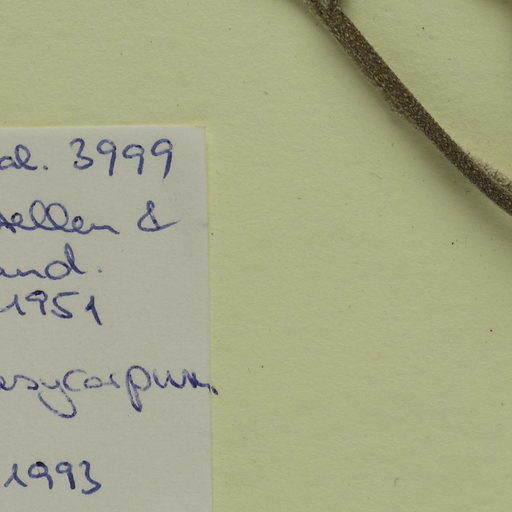 al. 3999
ellen &
and.
1951
asycarpum.
1993